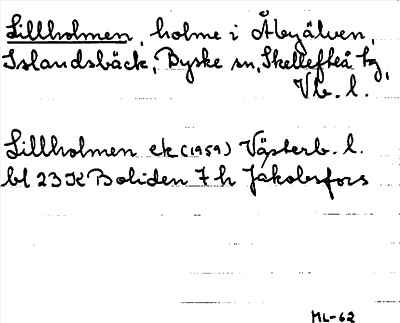 Lillholmen, holme i Åbyälven,
Islandsbäck, Byske sn, Skellefteå tg,
Vb. l.
Lillholmen ek (1959) Västerb. l.
bl 23 K Boliden 7 h Jakobsfors
ML-62